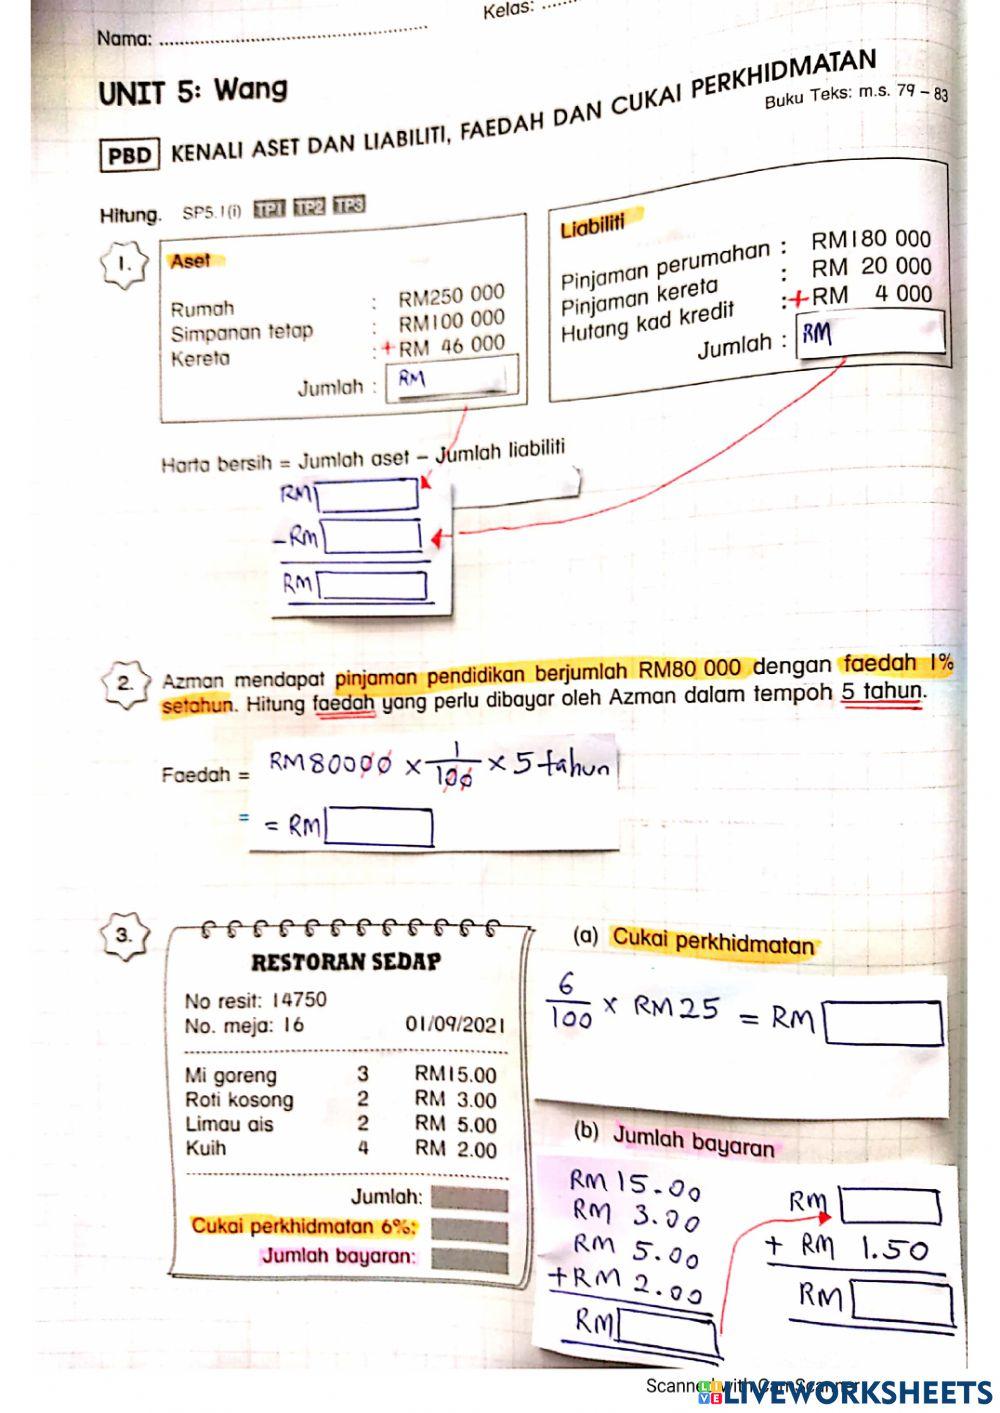 Nama: ........................ Kelas: ......
UNIT 5: Wang
PBD KENALI ASET DAN LIABILITI, FAEDAH DAN CUKAI PERKHIDMATAN
Buku Teks: m.s. 79 – 83
Hitung. SP5.1(i) TP1 TP2 TP3
1.
Aset
Rumah : RM250 000
Simpanan tetap : RM100 000
Kereta : +RM 46 000
Jumlah : RM
Liabiliti
Pinjaman perumahan : RM180 000
Pinjaman kereta : RM 20 000
Hutang kad kredit : +RM 4 000
Jumlah : RM
Harta bersih = Jumlah aset – Jumlah liabiliti
RM
–RM
RM
2. Azman mendapat pinjaman pendidikan berjumlah RM80 000 dengan faedah 1%
setahun. Hitung faedah yang perlu dibayar oleh Azman dalam tempoh 5 tahun.
Faedah = RM80000 × 1/100 × 5 tahun
= = RM
3.
RESTORAN SEDAP
No resit: 14750
No. meja: 16 01/09/2021
Mi goreng 3 RM15.00
Roti kosong 2 RM 3.00
Limau ais 2 RM 5.00
Kuih 4 RM 2.00
Jumlah:
Cukai perkhidmatan 6%:
Jumlah bayaran:
(a) Cukai perkhidmatan
6/100 × RM25 = RM
(b) Jumlah bayaran
RM 15.00
RM 3.00
RM 5.00
+RM 2.00
RM
RM
+ RM 1.50
RM
Scanned with CamScanner
LIVEWORKSHEETS